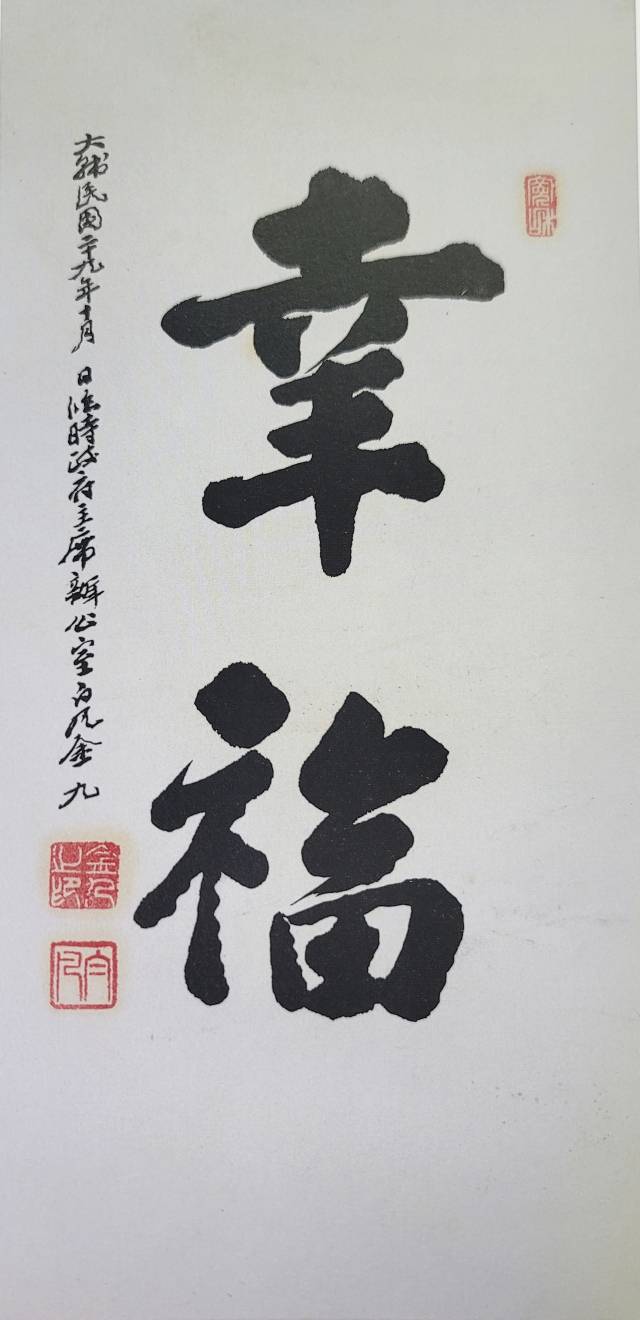 幸福
大韓民國二十九年十月 日臨時政府主席辦公室白凡金 九
金九之印
白凡